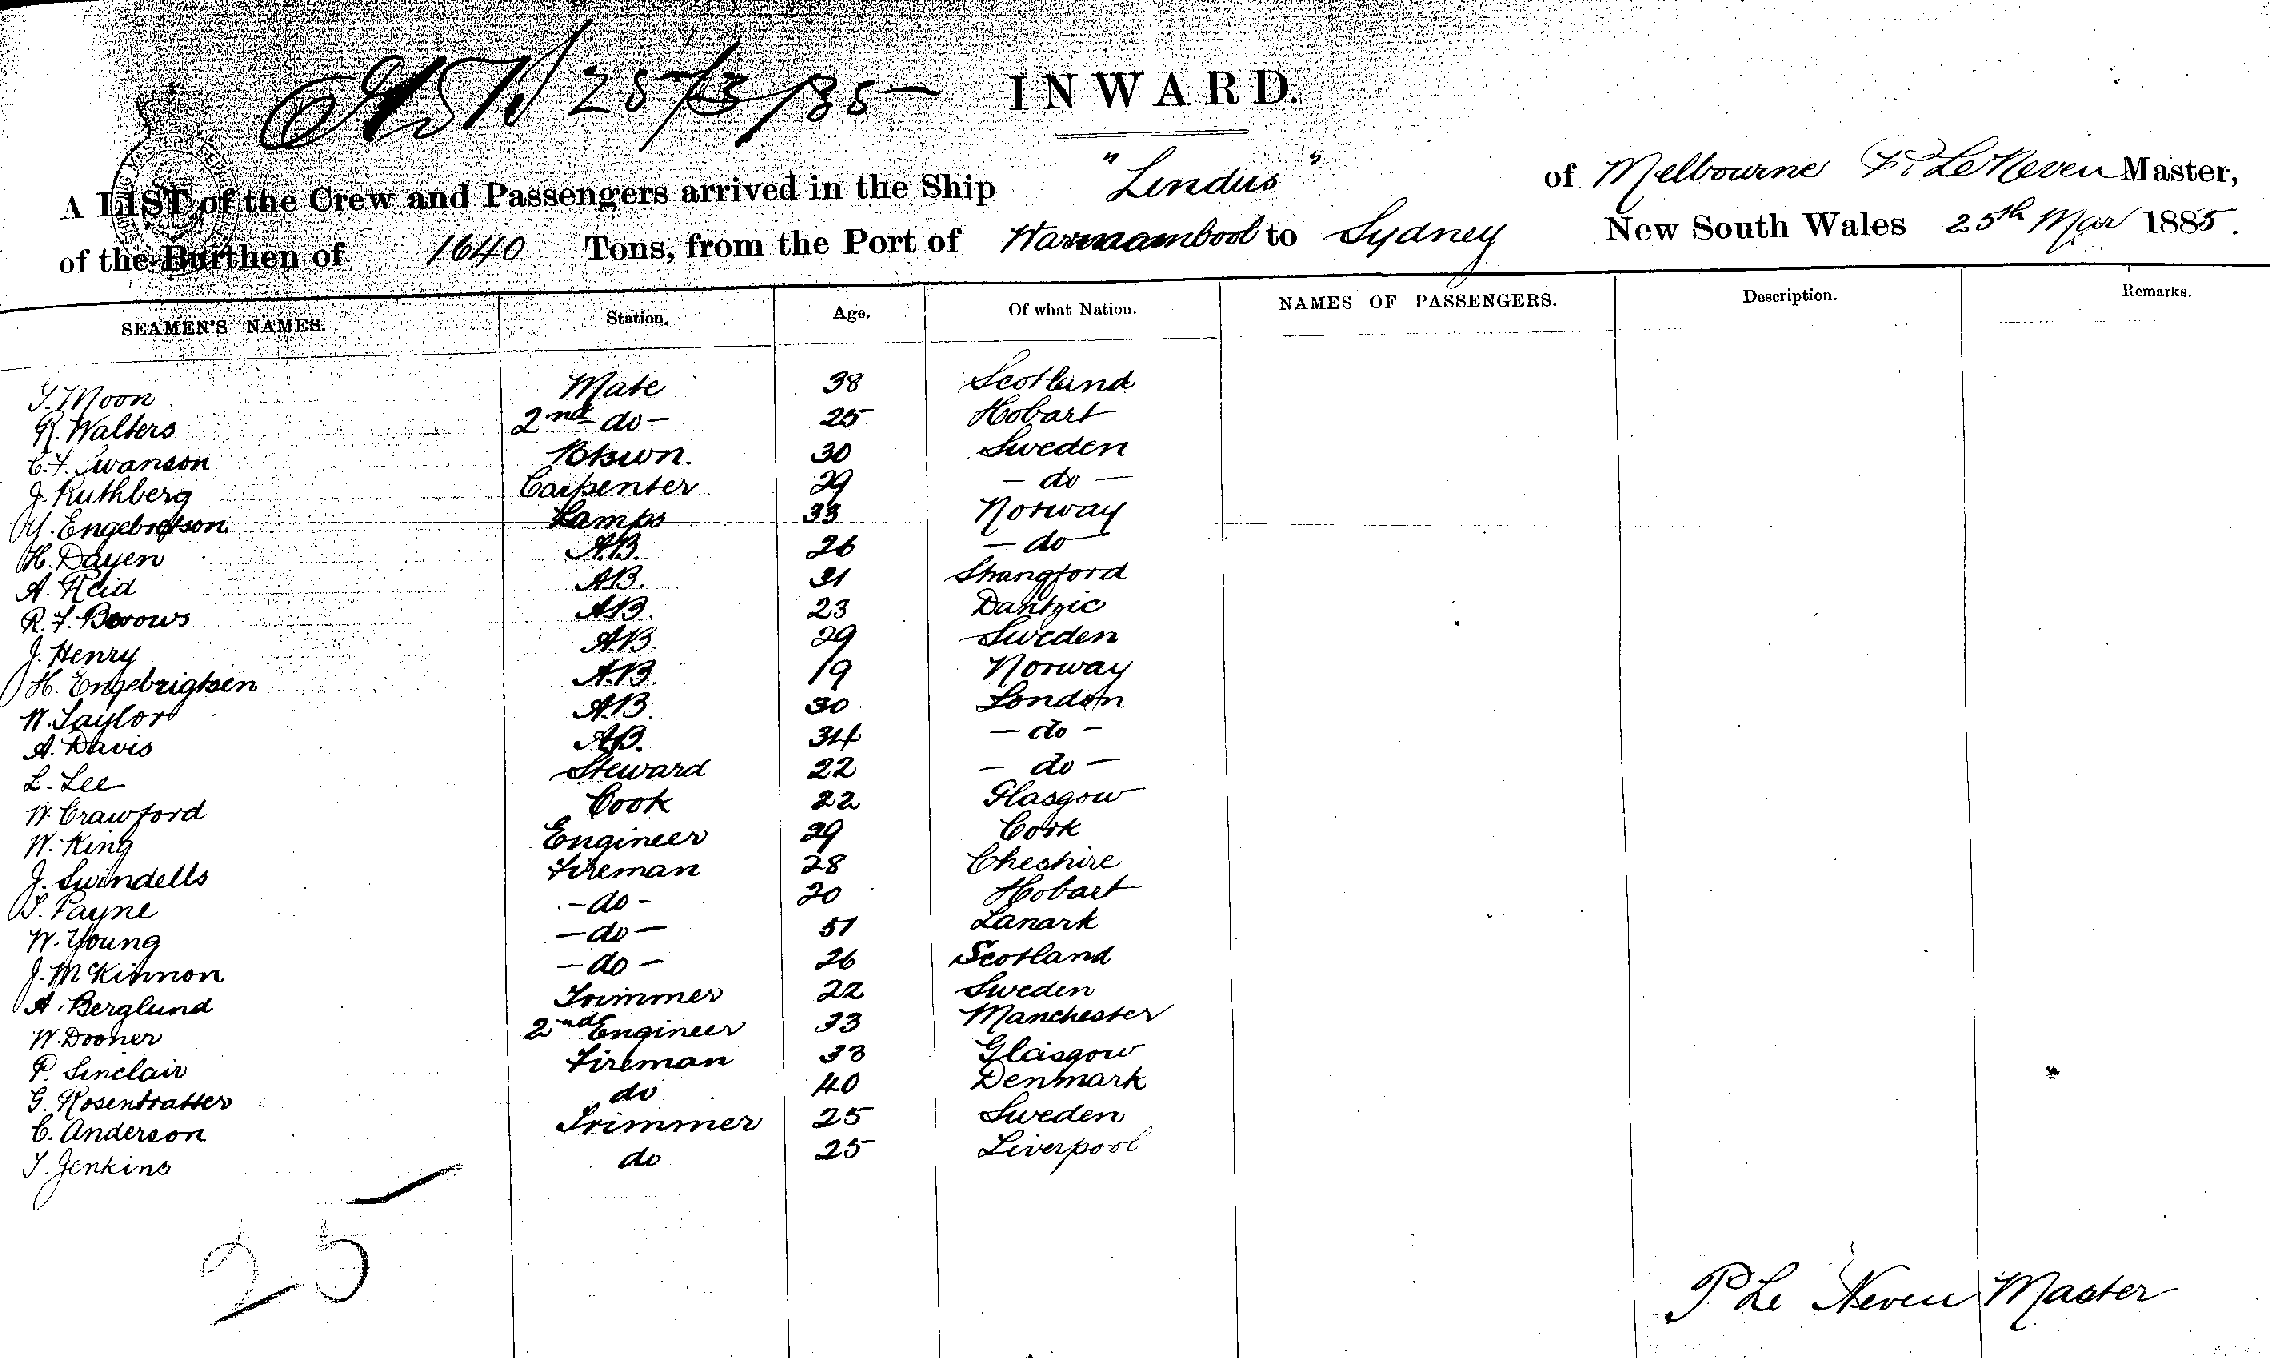 25/3/85 INWARD.
A LIST of the Crew and Passengers arrived in the Ship "Lindus" of Melbourne P Le Neven Master,
of the Burthen of 1640 Tons, from the Port of Warrnambool to Sydney New South Wales 25th Mar 1885.
SEAMEN'S NAMES. Station. Age. Of what Nation. NAMES OF PASSENGERS. Description. Remarks.
T. Moon Mate 38 Scotland
R. Walters 2nd do - 25 Hobart
C. F. Swanson Btswn. 30 Sweden
J. Ruthberg Carpenter 29 - do -
Engebretson Lamps 33 Norway
H. Dayen A.B. 26 - do
A. Reid A.B. 31 Strangford
R. F. Borows A.B. 23 Dantzic
J. Henry A.B. 29 Sweden
H. Engebrigtsen A.B. 19 Norway
W. Taylor A.B. 30 London
A. Davis A.B. 34 - do -
L. Lee Steward 22 - do -
W. Crawford Cook 22 Glasgow
W. King Engineer 29 Cork
J. Swindells Fireman 28 Cheshire
T. Payne - do - 20 Hobart
W. Young - do - 51 Lanark
J. McKinnon - do - 26 Scotland
A. Berglund Trimmer 22 Sweden
W. Dooner 2nd Engineer 33 Manchester
P. Sinclair Fireman 33 Glasgow
G. Rosentratter do 40 Denmark
C. Anderson Trimmer 25 Sweden
T. Jenkins do 25 Liverpool
25
P Le Neven Master